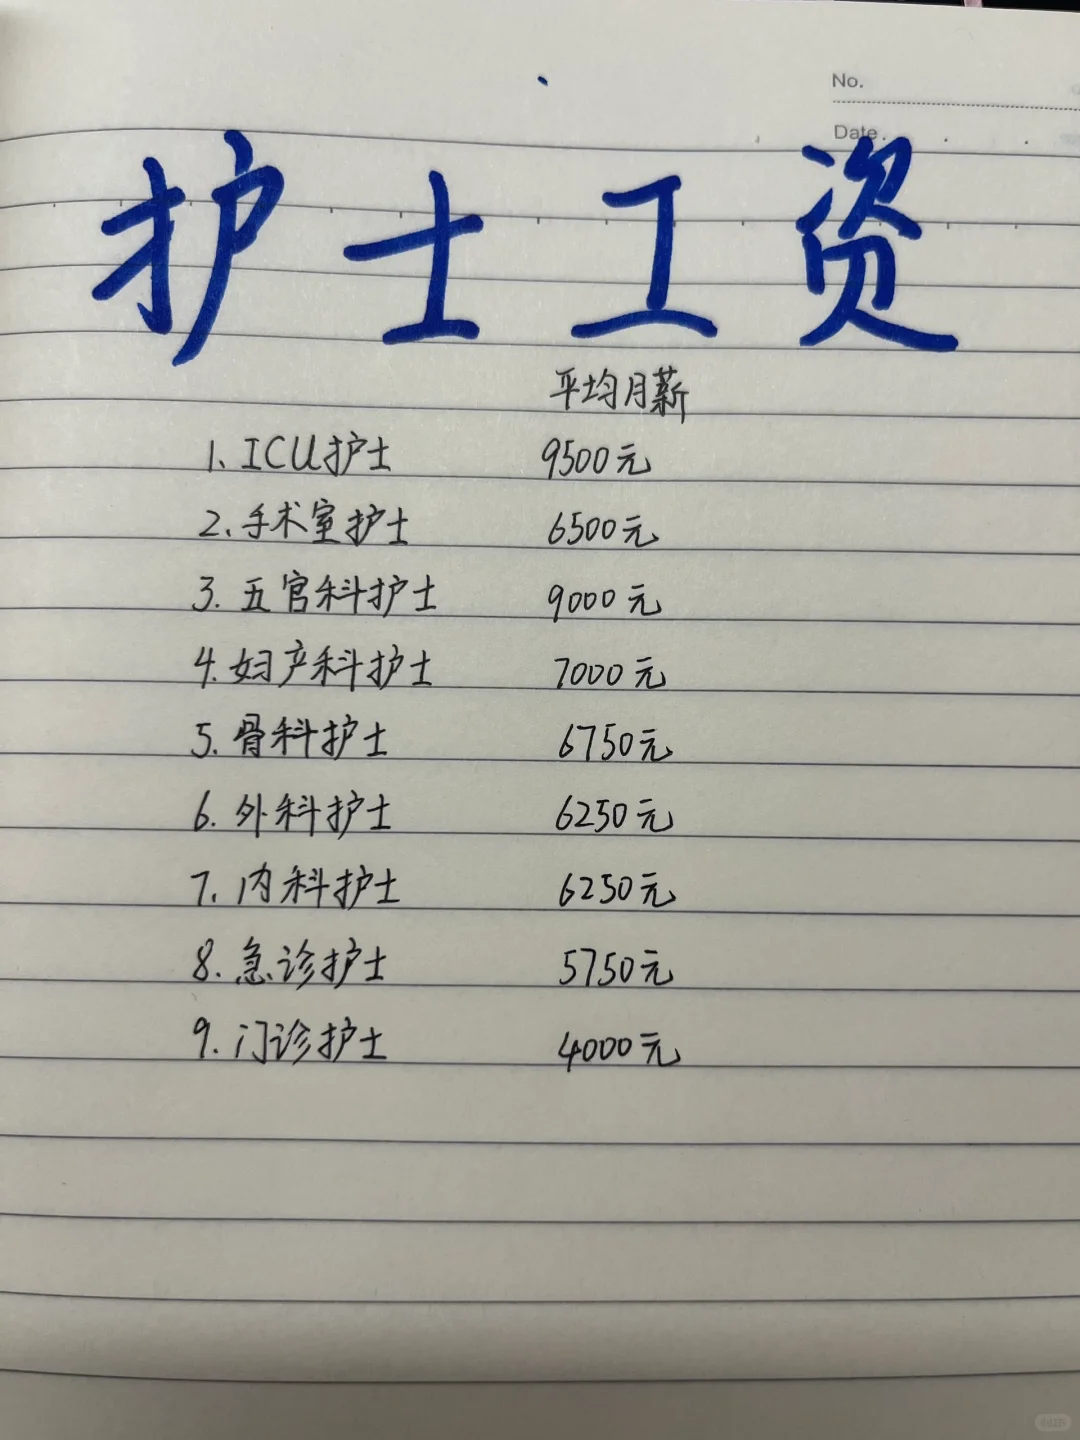 No.
Date.
护士工资
平均月薪
1、ICU护士 9500元
2、手术室护士 6500元
3. 五官科护士 9000元
4. 妇产科护士 7000元
5. 骨科护士 6750元
6. 外科护士 6250元
7. 内科护士 6250元
8. 急诊护士 5750元
9. 门诊护士 4000元